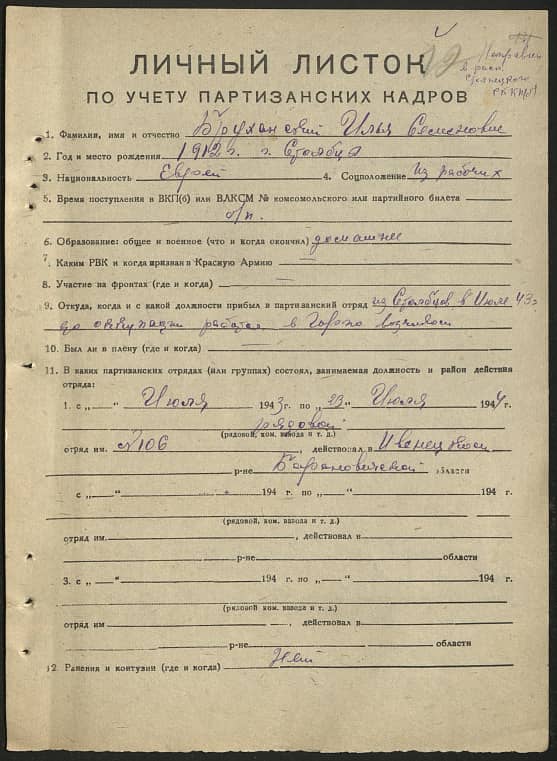 Направлен
в расп.
Столбцовского
РККП(б)
ЛИЧНЫЙ ЛИСТОК
ПО УЧЕТУ ПАРТИЗАНСКИХ КАДРОВ
1. Фамилия, имя и отчество Брухан ский Илья Семенович
2. Год и место рождения 1912 г. г. Столбцы
3. Национальность Еврей 4. Соцположение из рабочих
5. Время поступления в ВКП(б) или ВЛКСМ № комсомольского или партийного билета
б/п.
6. Образование: общее и военное (что и когда окончил) домашнее
7. Каким РВК и когда призван в Красную Армию
8. Участие на фронтах (где и когда)
9. Откуда, когда и с какой должности прибыл в партизанский отряд из Столбцов в Июле 43 г.
до оккупации работал в
10. Был ли в плену (где и когда)
11. В каких партизанских отрядах (или группах) состоял, занимаемая должность и район действия
отряда:
1. с „ “ Июля 1943 г. по „23“ Июля 1944 г.
рядовой
(рядовой, ком. взвода и т. д.)
отряд им. №106, действовал в Ивенецком
р-не Барановичской области
с „ “ 194 г. по „ “ 194 г.
(рядовой, ком. взвода и т. д.)
отряд им. , действовал в
р-не области
3. с „ “ 194 г. по „ “ 194 г.
(рядовой, ком. взвода и т. д.)
отряд им , действовал в
р-не области
12. Ранения и контузии (где и когда) Нет